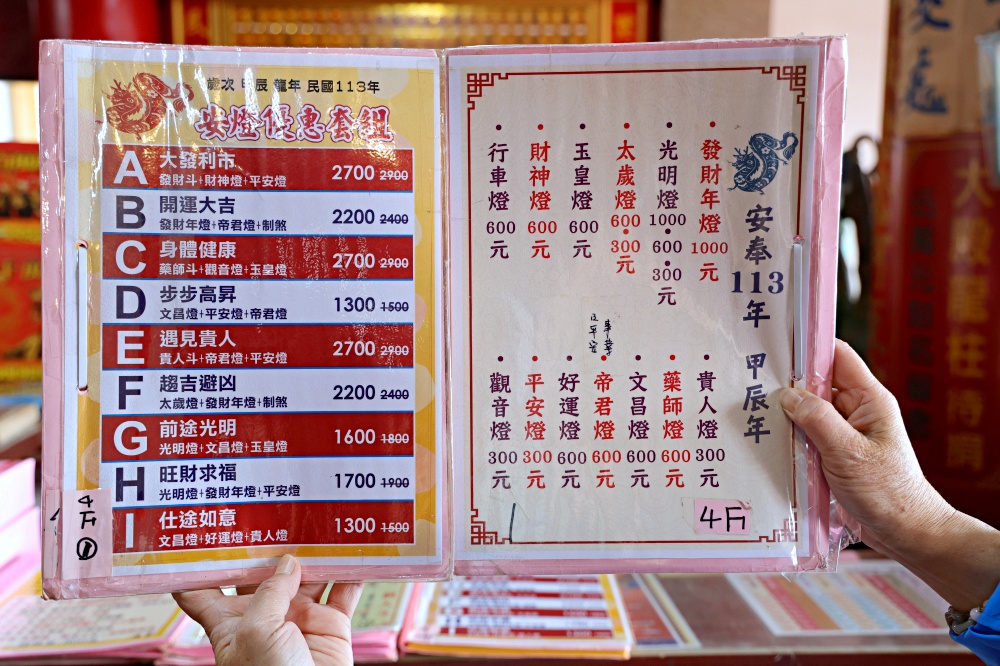 歲次 甲辰 龍年 民國113年
安燈優惠套組
A 大發利市 2700 2900
發財斗+財神燈+平安燈
B 開運大吉 2200 2400
發財年燈+帝君燈+制煞
C 身體健康 2700 2900
藥師斗+觀音燈+玉皇燈
D 步步高昇 1300 1500
文昌燈+平安燈+帝君燈
E 遇見貴人 2700 2900
貴人斗+帝君燈+平安燈
F 趨吉避凶 2200 2400
太歲燈+發財年燈+制煞
G 前途光明 1600 1800
光明燈+文昌燈+玉皇燈
H 旺財求福 1700 1900
光明燈+發財年燈+平安燈
I 仕途如意 1300 1500
文昌燈+好運燈+貴人燈
4斤
安奉113年 甲辰年
發財年燈1000元
光明燈1000•600•300元
太歲燈600•300元
玉皇燈600元
財神燈600元
行車燈600元
貴人燈300元
藥師燈600元
文昌燈600元
帝君燈600元
好運燈600元
平安燈300元
觀音燈300元
4斤